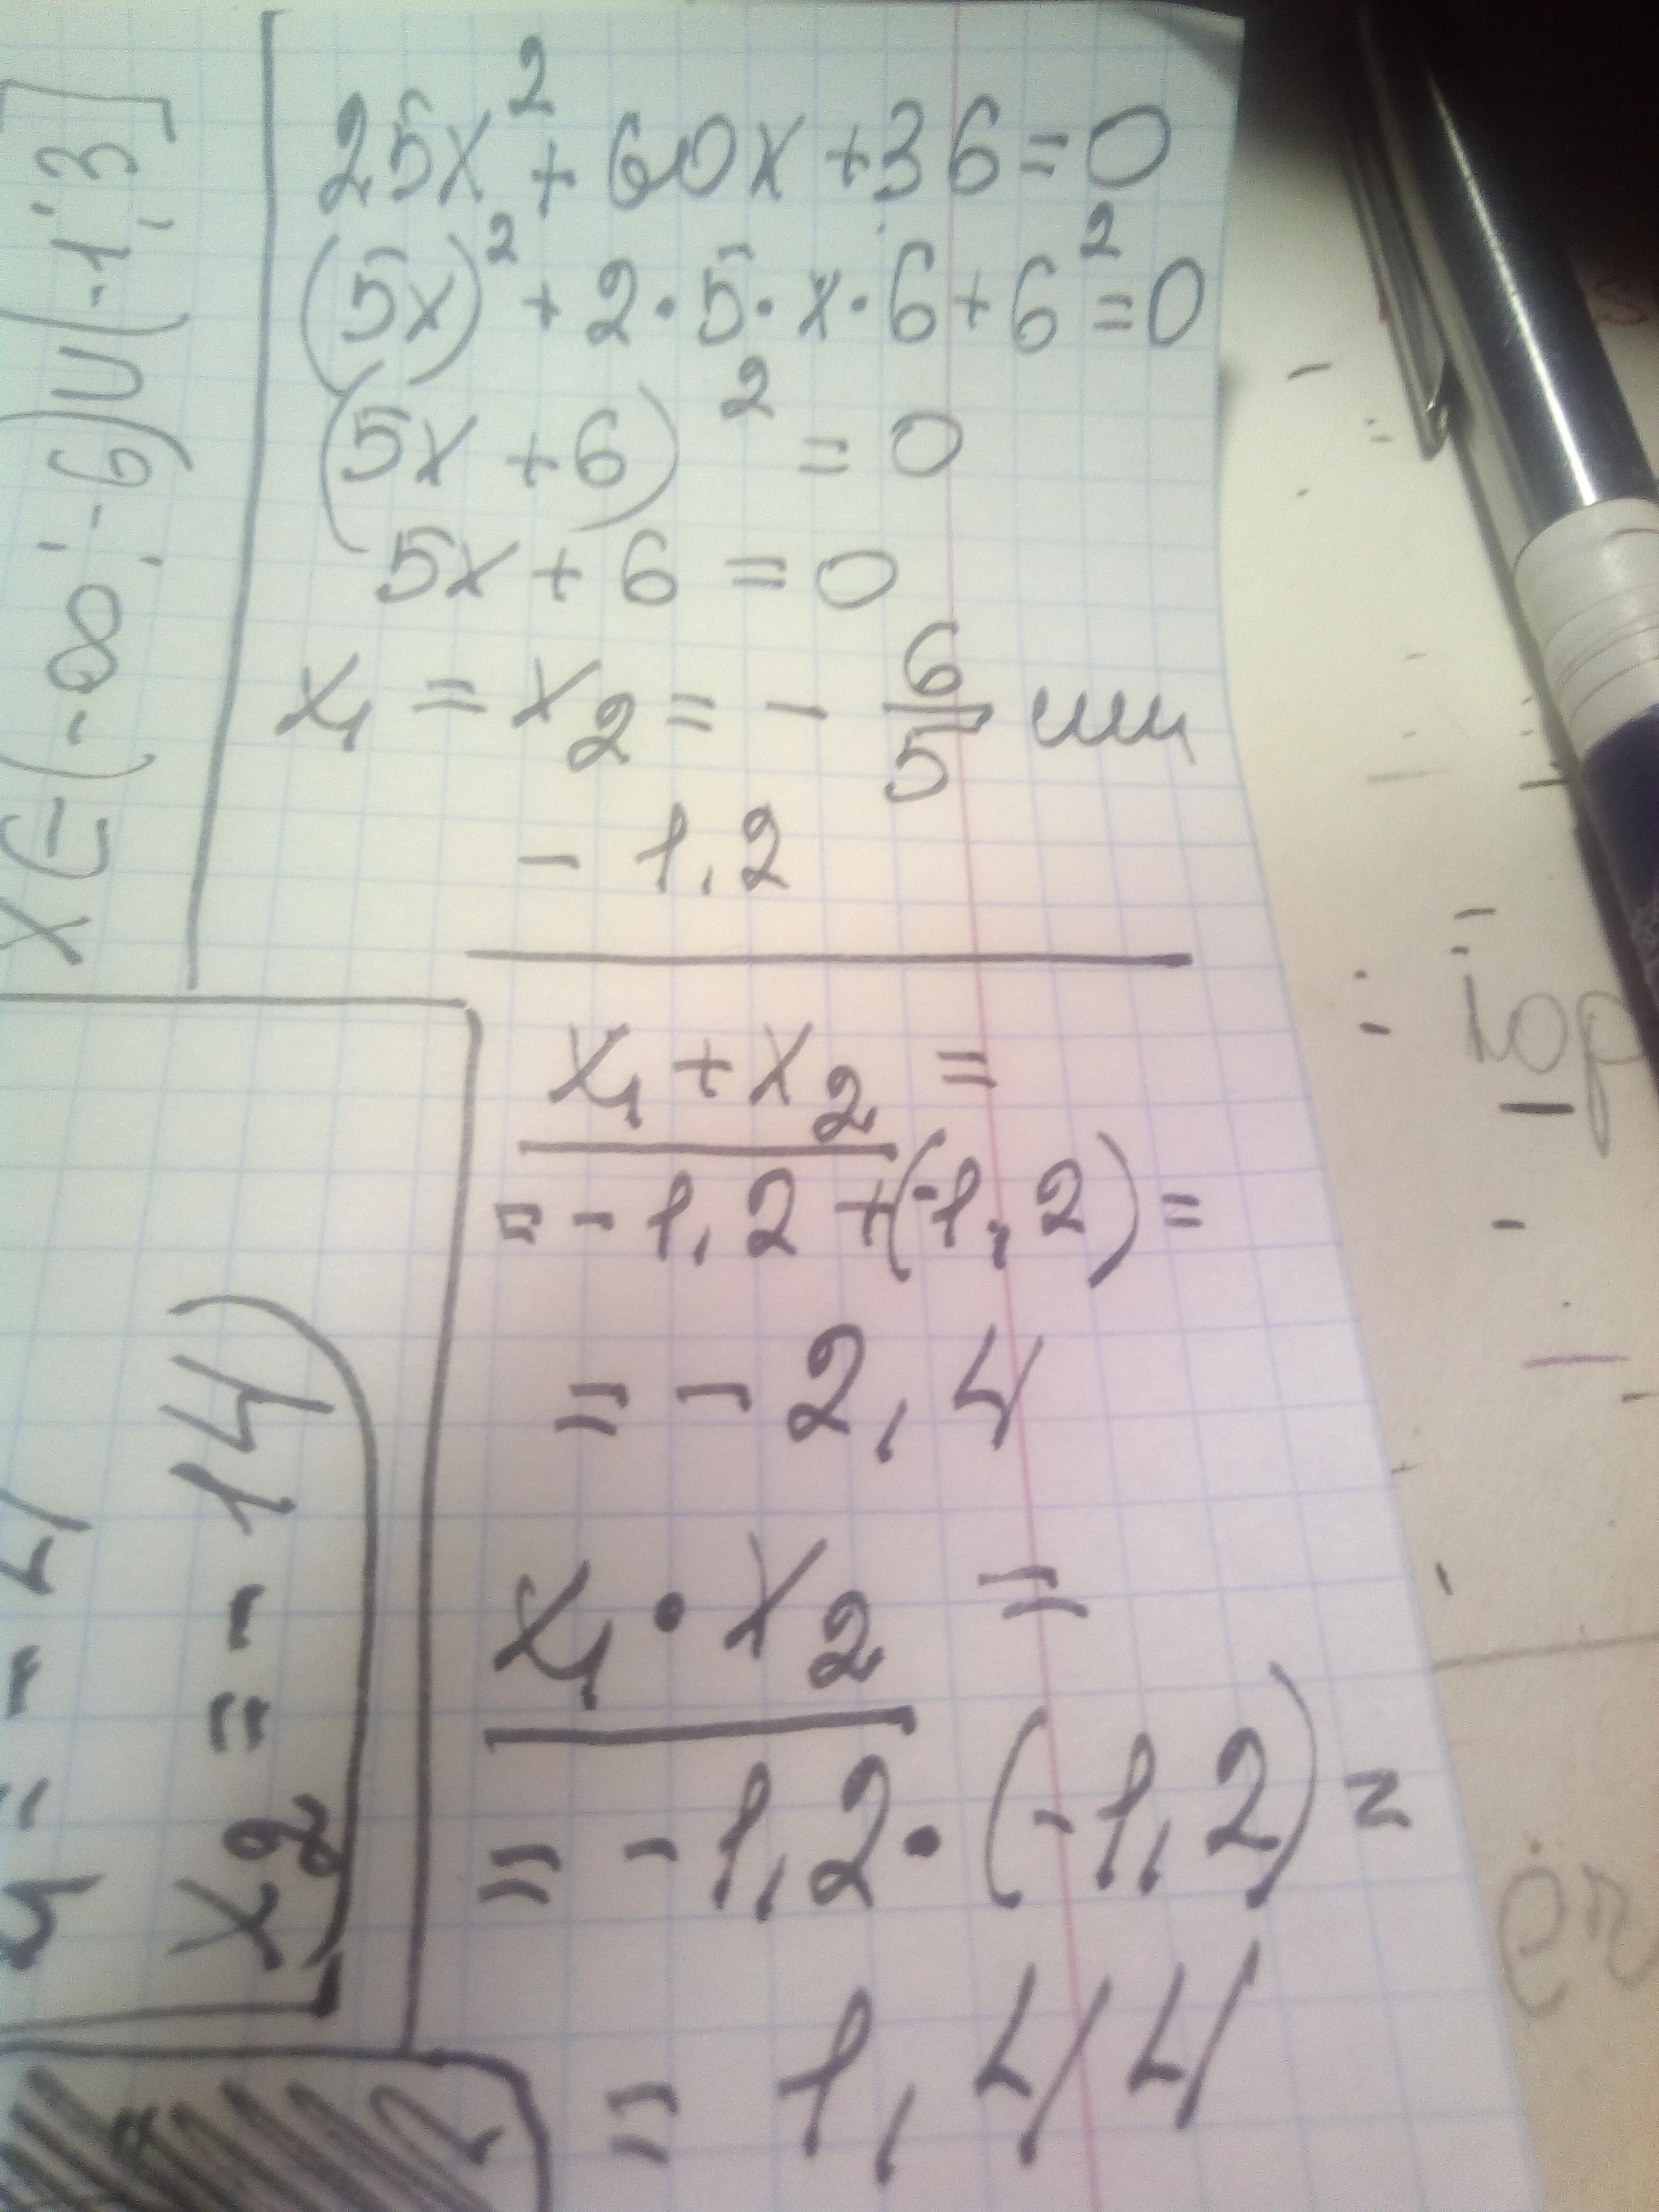 25x² + 60x + 36 = 0
(5x)² + 2 · 5 · x · 6 + 6² = 0
(5x + 6)² = 0
5x + 6 = 0
x₁ = x₂ = - 6/5 или
- 1,2
x₁ + x₂ =
= - 1,2 + (-1,2) =
= - 2,4
x₁ · x₂ =
= - 1,2 · (-1,2) =
= 1,44
x ∈ (-∞; -6) ∪ (-1; 3]
x₂ = - 14